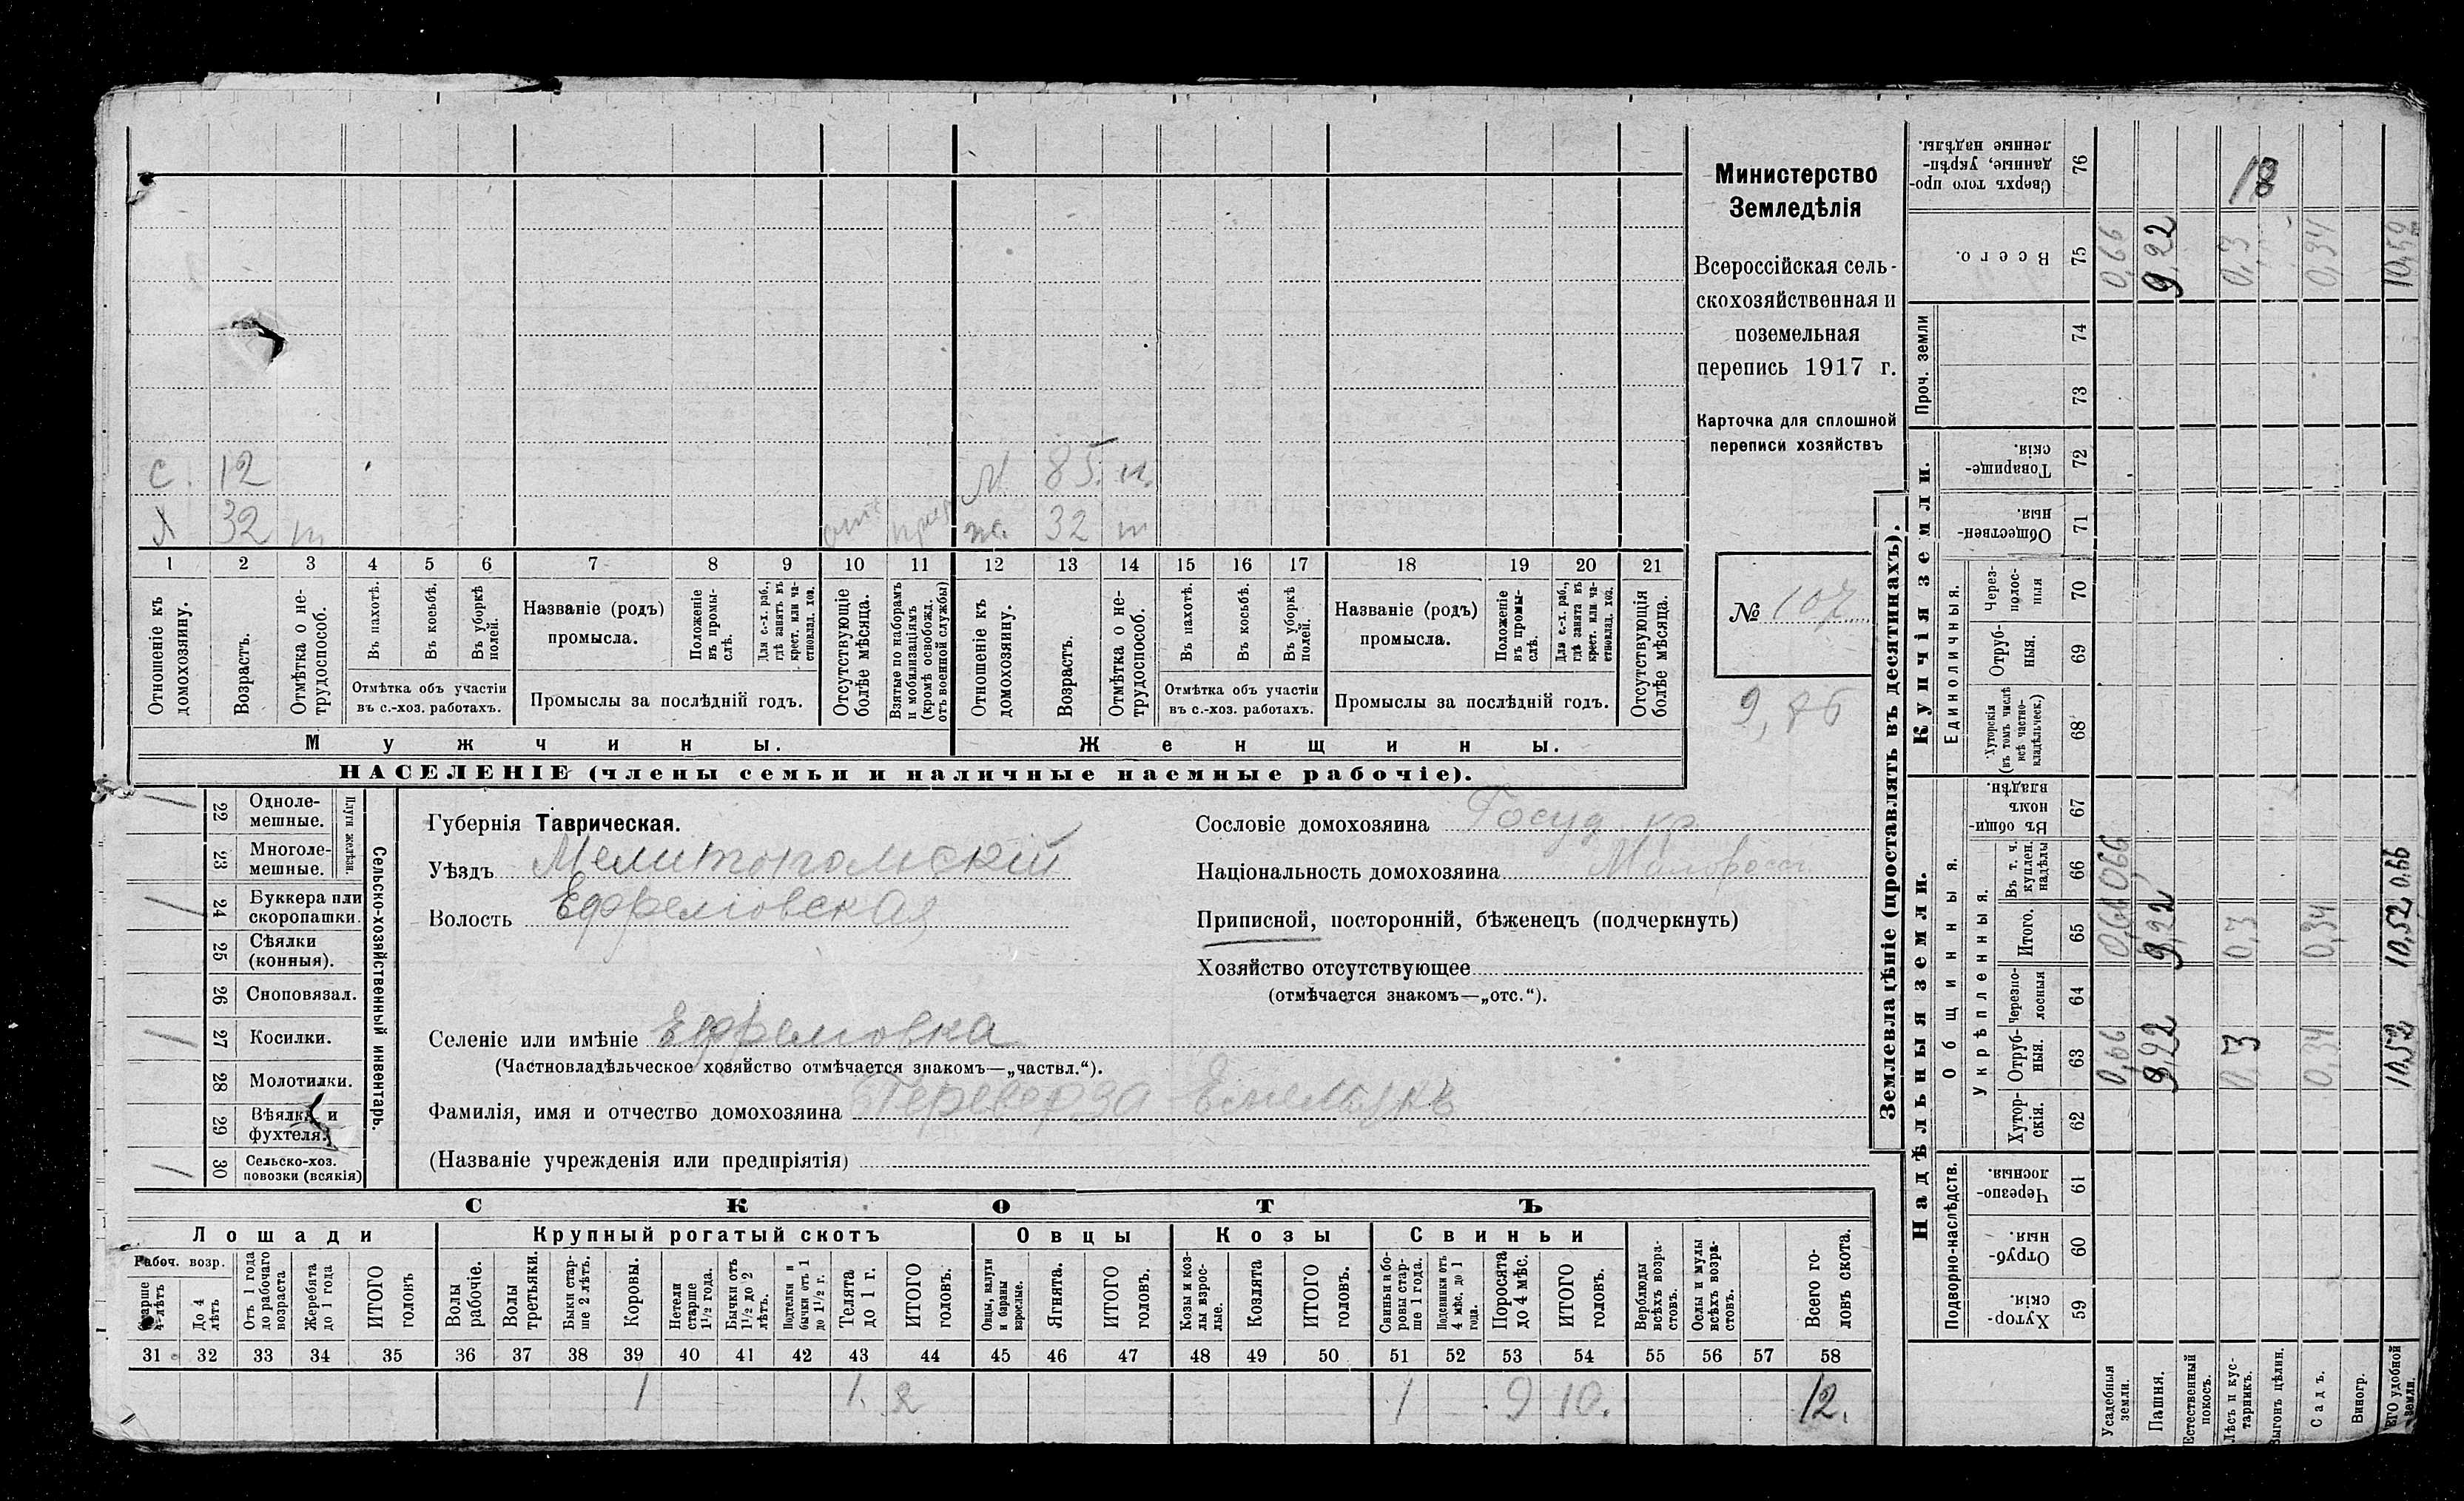 Министерство
Земледѣлія
Всероссійская сель-
скохозяйственная и
поземельная
перепись 1917 г.
Карточка для сплошной
переписи хозяйствъ
№ 107
9,86
С. 12
М 85. н.
Х 32 п
отс
ж. 32 п
1 2 3 4 5 6 7 8 9 10 11 12 13 14 15 16 17 18 19 20 21
Отношеніе къ домохозяину.
Возрастъ.
Отмѣтка о не-трудоспособ.
Въ пахотѣ.
Въ косьбѣ.
Въ уборкѣ полей.
Отмѣтка объ участіи
въ с.-хоз. работахъ.
Названіе (родъ)
промысла.
Положеніе въ промы-слѣ.
Для с.-х. раб., гдѣ занятъ въ крест. или ча-стновлад. хоз.
Промыслы за послѣдній годъ.
Отсутствующіе болѣе мѣсяца.
Взятые по наборамъ и мобилизаціямъ (кромѣ освобожд. отъ военной службы)
Отношеніе къ домохозяину.
Возрастъ.
Отмѣтка о не-трудоспособ.
Въ пахотѣ.
Въ косьбѣ.
Въ уборкѣ полей.
Отмѣтка объ участіи
въ с.-хоз. работахъ.
Названіе (родъ)
промысла.
Положеніе въ промы-слѣ.
Для с.-х. раб., гдѣ занята въ крест. или ча-стновлад. хоз.
Промыслы за послѣдній годъ.
Отсутствующія болѣе мѣсяца.
Мужчины.
Женщины.
НАСЕЛЕНІЕ (члены семьи и наличные наемные рабочіе).
Сельско-хозяйственный инвентарь.
Плуги желѣзн.
22 Одноле-
мешные.
23 Многоле-
мешные.
24 Буккера или
скоропашки.
25 Сѣялки
(конныя).
26 Сноповязал.
27 Косилки.
28 Молотилки.
29 Вѣялки и
фухтеля.
30 Сельско-хоз.
повозки (всякія)
Губернія Таврическая.
Уѣздъ Мелитопольскій
Волость Ефремовская
Селеніе или имѣніе Ефремовка
(Частновладѣльческое хозяйство отмѣчается знакомъ—„частвл.“).
Фамилія, имя и отчество домохозяина Переверза
(Названіе учрежденія или предпріятія)
Сословіе домохозяина Госуд кр
Національность домохозяина Малорос
Приписной, посторонній, бѣженецъ (подчеркнуть)
Хозяйство отсутствующее
(отмѣчается знакомъ—„отс.“).
СКОТЪ
Лошади
Крупный рогатый скотъ
Овцы
Козы
Свиньи
Рабоч. возр.
Старше 4-лѣтъ
До 4 лѣтъ
Отъ 1 года до рабочаго возраста
Жеребята до 1 года
ИТОГО головъ
Волы рабочіе.
Волы третьяки.
Быки стар-ше 2 лѣтъ.
Коровы.
Нетели старше 1½ года.
Бычки отъ 1½ до 2 лѣтъ.
Подтелки и бычки отъ 1 до 1½ г.
Телята до 1 г.
ИТОГО головъ.
Овцы, валухи и бараны взрослые.
Ягнята.
ИТОГО головъ.
Козы и коз-лы взрос-лые.
Козлята
ИТОГО головъ.
Свиньи и бо-ровы стар-ше 1 года.
Подсвинки отъ 4 мѣс. до 1 года.
Поросята до 4 мѣс.
ИТОГО головъ.
Верблюды всѣхъ возра-стовъ.
Ослы и мулы всѣхъ возра-стовъ.
Всего го-ловъ скота.
31 32 33 34 35 36 37 38 39 40 41 42 43 44 45 46 47 48 49 50 51 52 53 54 55 56 57 58
1 1. 2 1 9 10. 12.
Землевладѣніе (проставлять въ десятинахъ).
Купчія земли.
Надѣльныя земли.
Проч. земли
Единоличныя.
Общинныя.
Укрѣпленныя.
Подворно-наслѣдств.
Сверхъ того про-данные, укрѣп-ленные надѣлы. 76
Всего. 75
74
73
Товарище-скія. 72
Обществен-ныя. 71
Через-полос-ныя 70
Отруб-ныя. 69
Хуторскія (въ томъ числѣ всѣ частно-владѣльческ.) 68
Въ общи-номъ владѣн. 67
Въ т. ч. куплен. надѣлы 66
Итого. 65
Черезпо-лосныя 64
Отруб-ныя. 63
Хутор-скія. 62
Черезпо-лосныя. 61
Отруб-ныя. 60
Хутор-скія. 59
Усадебныя земли. 0,66 0,66 0,66 0,66
Пашня. 9,22 9,22 9,22
Естественный покосъ.
Лѣсъ и кус-тарникъ. 0,3 0,3 0,3
Выгонъ цѣлин.
Садъ. 0,34 0,34 0,34
Виногр.
ЕГО удобной земли. 10,52 10,52 0,66 10,52